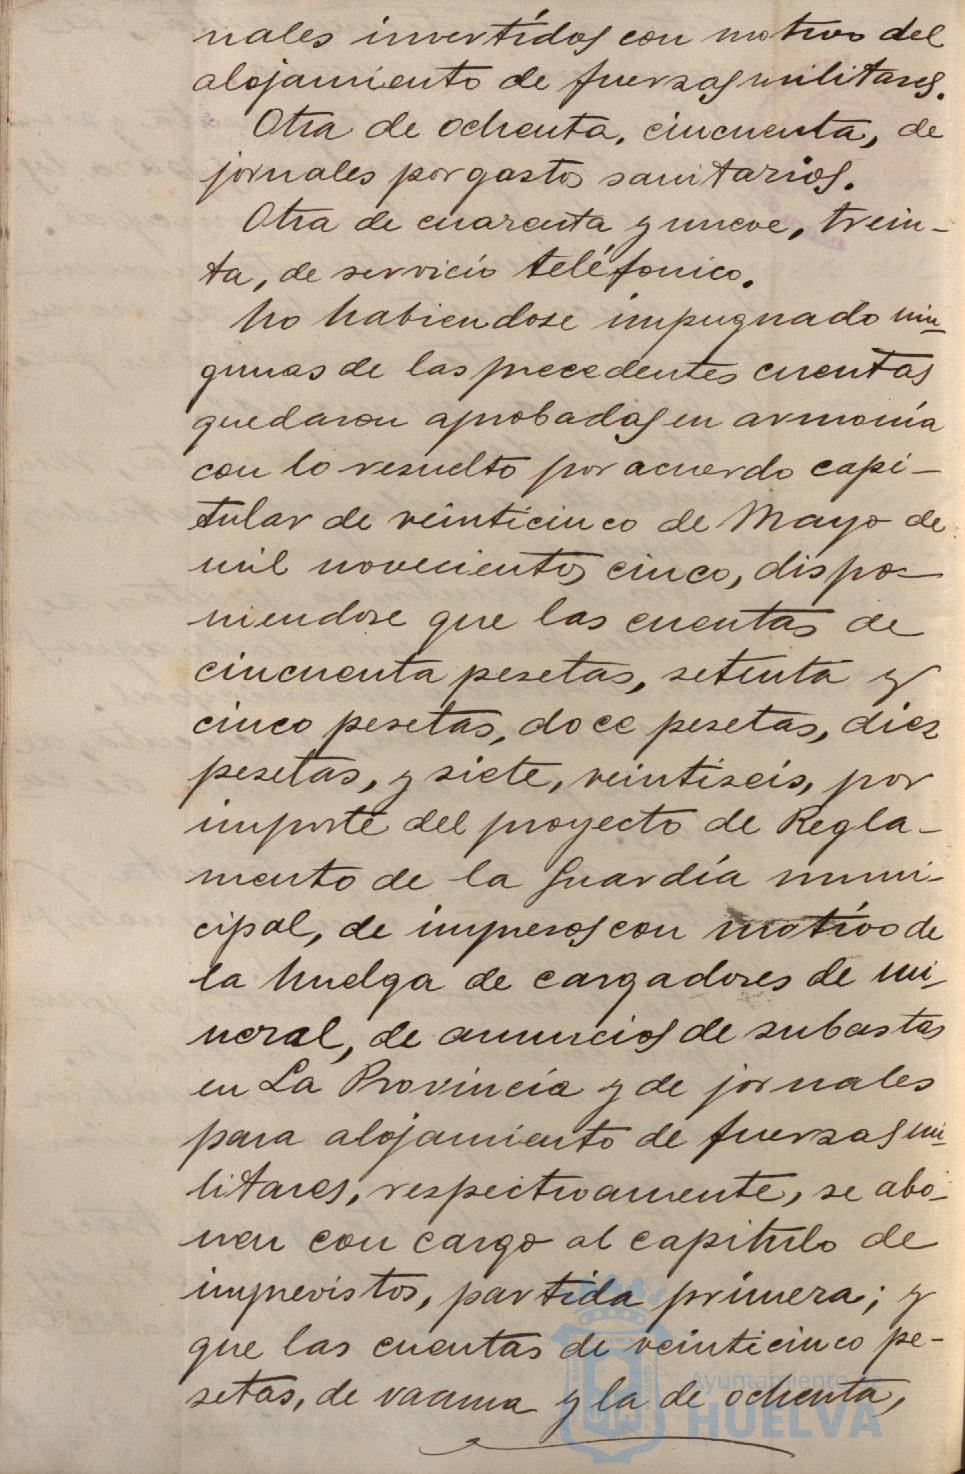 nales invertidos con motivo del
alojamiento de fuerzas militares.
Otra de ochenta, cincuenta, de
jornales por gastos sanitarios.
Otra de cuarenta y nueve, trein-
ta, de servicio teléfonico.
No habiendose impugnado nin-
gunas de las precedentes cuentas
quedaron aprobadas en armonía
con lo resuelto por acuerdo capi-
tular de veinticinco de Mayo de
mil novecientos cinco, dispo-
niendose que las cuentas de
cincuenta pesetas, setenta y
cinco pesetas, doce pesetas, diez
pesetas, y siete, veintiseis, por
importe del proyecto de Regla-
mento de la Guardia muni-
cipal, de impresos con motivo de
la huelga de cargadores de mi-
neral, de anuncios de subastas
en La Provincia y de jornales
para alojamiento de fuerzas mi-
litares, respectivamente, se abo-
nen con cargo al capitulo de
imprevistos, partida primera; y
que las cuentas de veinticinco pe-
setas, de vacuna y la de ochenta,
Ayuntamiento de
HUELVA